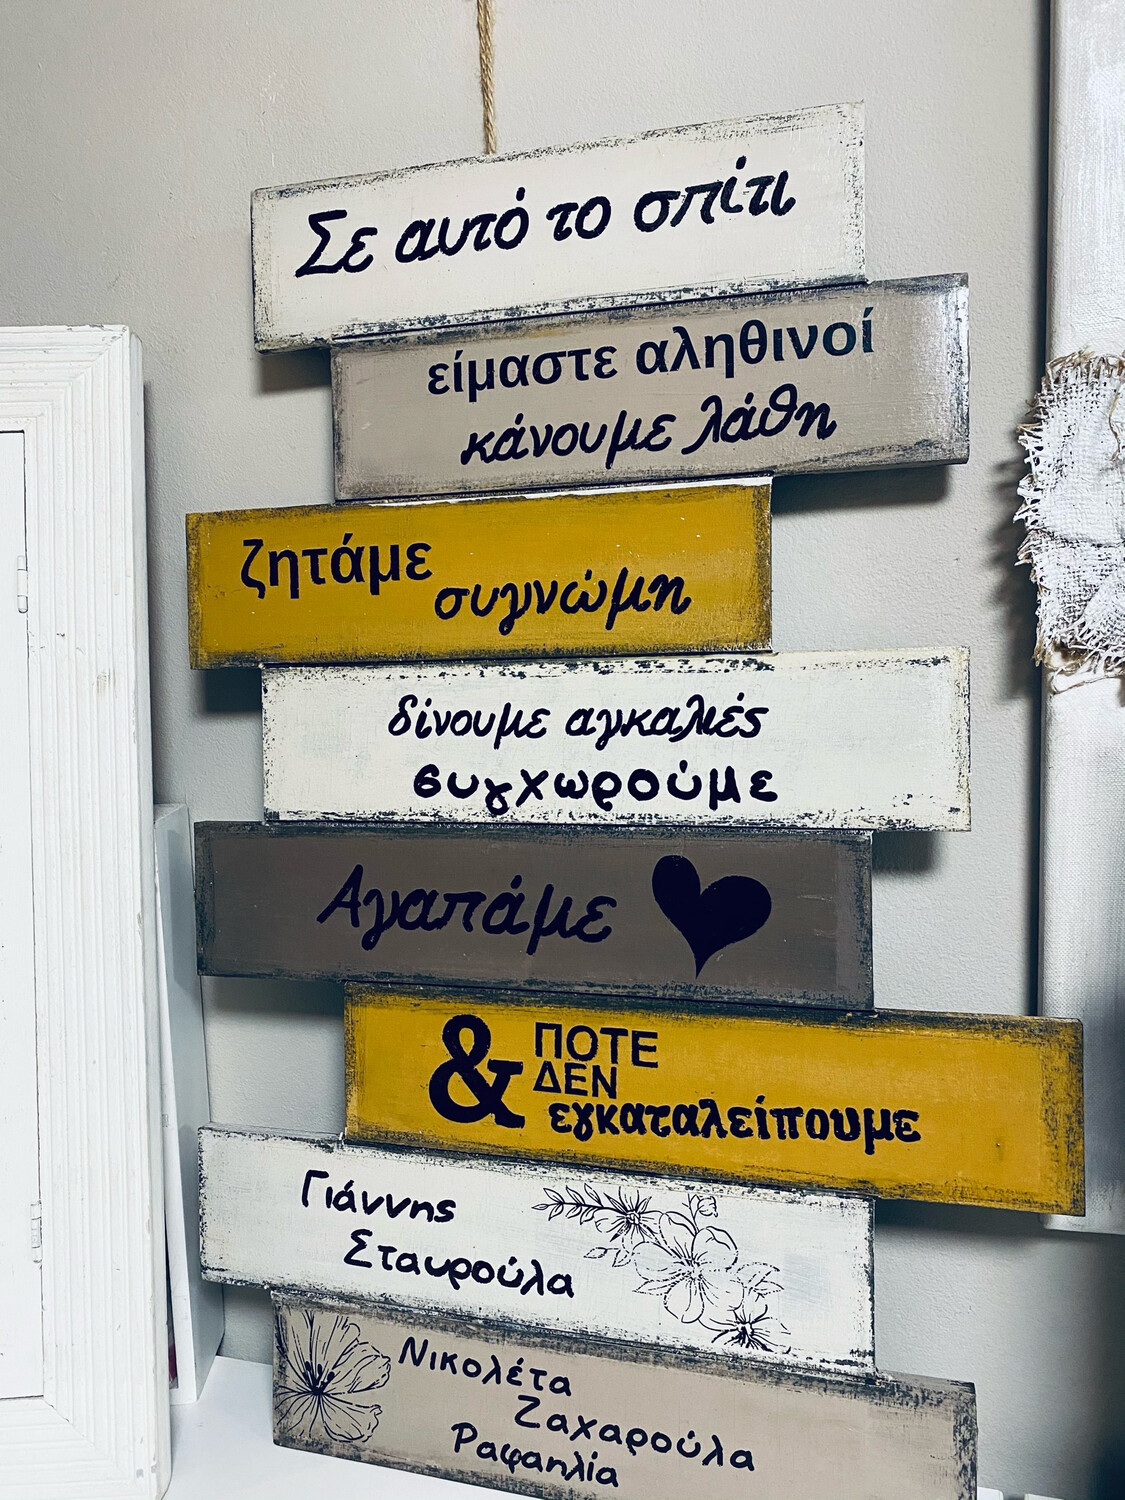 Σε αυτό το σπίτι
είμαστε αληθινοί
κάνουμε λάθη
ζητάμε
συγνώμη
δίνουμε αγκαλιές
συγχωρούμε
Αγαπάμε
& ΠΟΤΕ
ΔΕΝ
εγκαταλείπουμε
Γιάννης
Σταυρούλα
Νικολέτα
Ζαχαρούλα
Ραφαηλία